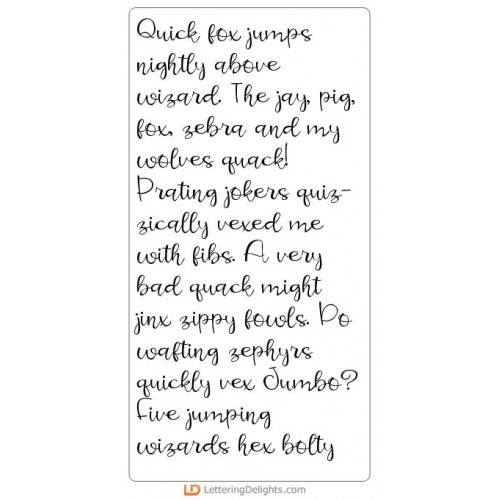 Quick fox jumps
nightly above
wizard. The jay, pig,
fox, zebra and my
wolves quack!
Prating jokers quiz-
zically vexed me
with fibs. A very
bad quack might
jinx zippy fowls. Do
wafting zephyrs
quickly vex Jumbo?
Five jumping
wizards hex bolty
LD LetteringDelights.com